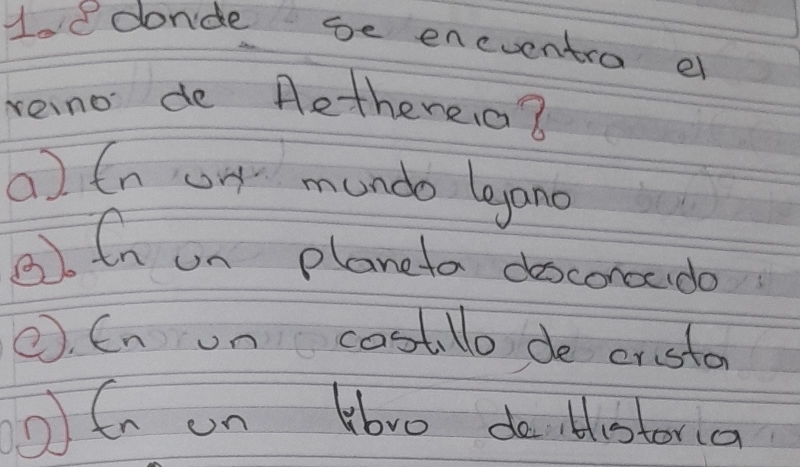 1. ¿donde se encuentra el
reino de Aethereia?
a). En un mundo lejano
B). En un planeta desconocido
c). En un castillo de crista
D) En un libro de Historia